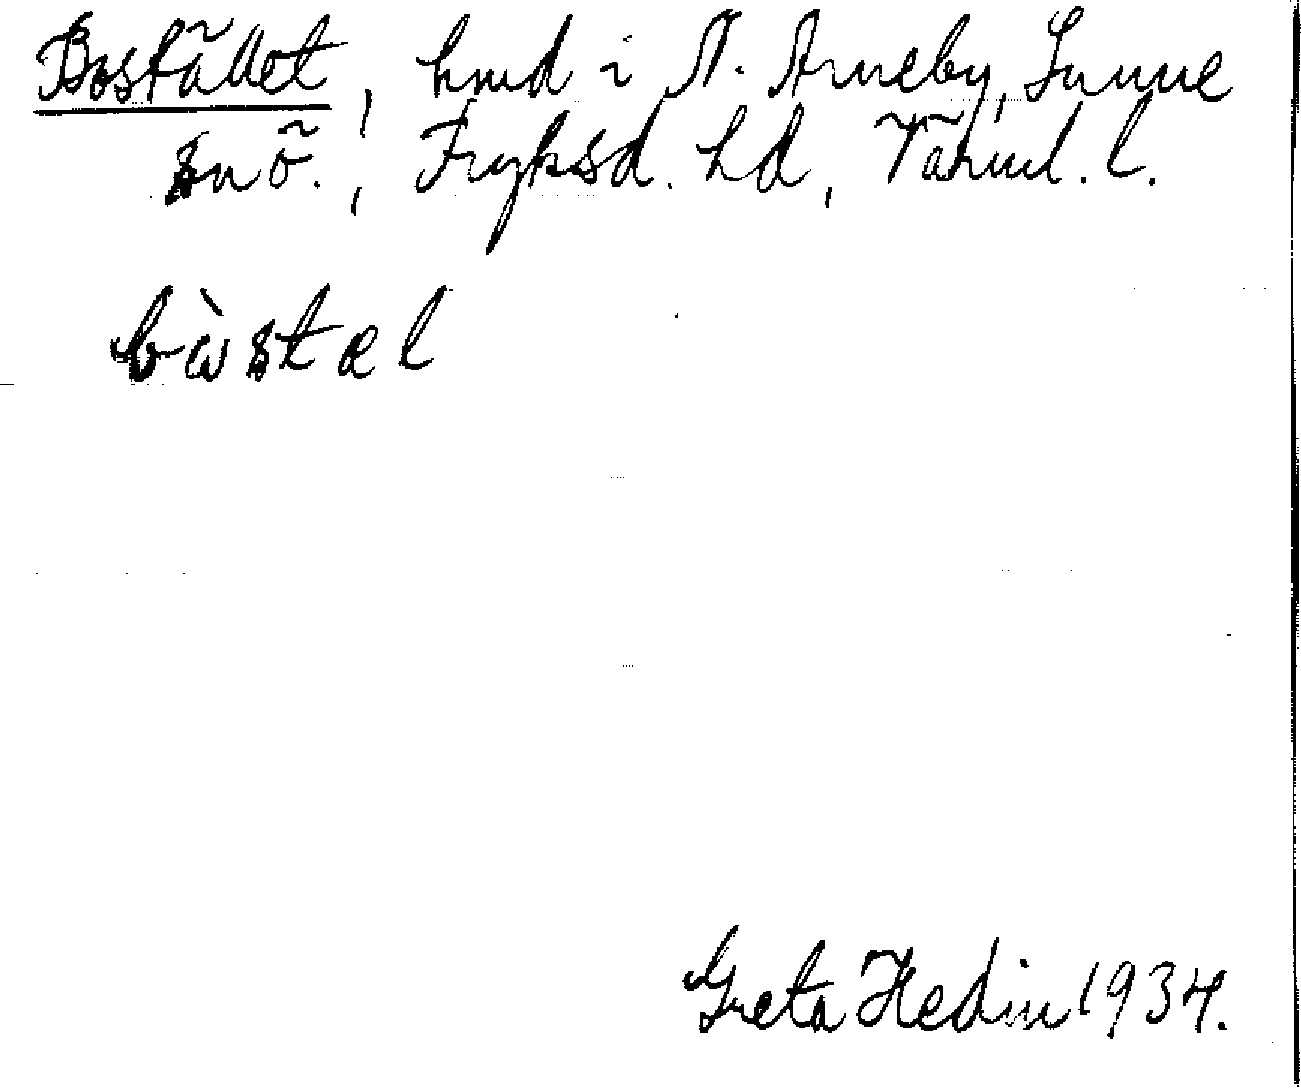 Bostället, hmd i N. Arneby, Sunne
snö., Fryksd. hd, Värml. l.
bὼstæl
Greta Hedin 1934.